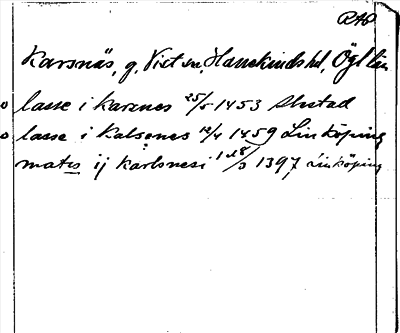 RAP
Karsnäs, g, Vist sn, Hanekinds hd, Ögl län
o lasse i karznes 25/5 1453 Skestad
o lasse i Kalsenes 12/4 1459 Linköping
matis ij karlsnesi 18/3 1397 Linköping